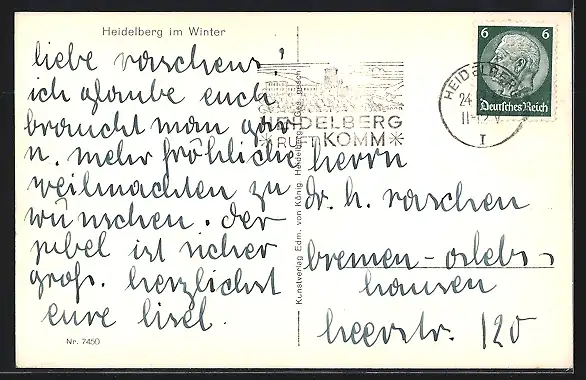 Heidelberg im Winter
liebe raschens!
ich glaube euch
braucht man gar
n. mehr fröhliche
weihnachten zu
wünschen. der
jubel ist sicher
gross. herzlichst
eure lisel.
Nr. 7450
Kunstverlag Edm. von König, Heidelberg
HEIDELBERG
*RUFT KOMM*
HEIDELBERG
24
11-12 V
I
6 6
Deutsches Reich
herrn
dr. h. raschen
bremen-oslebs-
hausen
heerstr. 120